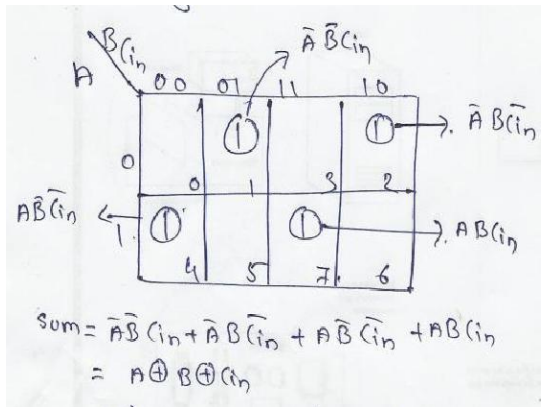 A̅ B̅ Cin
A BCin 00 01 11 10
0 1 1 A̅ B C̅in
0 1 3 2
A B̅ C̅in 1 1 1 A B Cin
4 5 7 6
Sum = A̅ B̅ Cin + A̅ B C̅in + A B̅ C̅in + A B Cin
= A ⊕ B ⊕ Cin